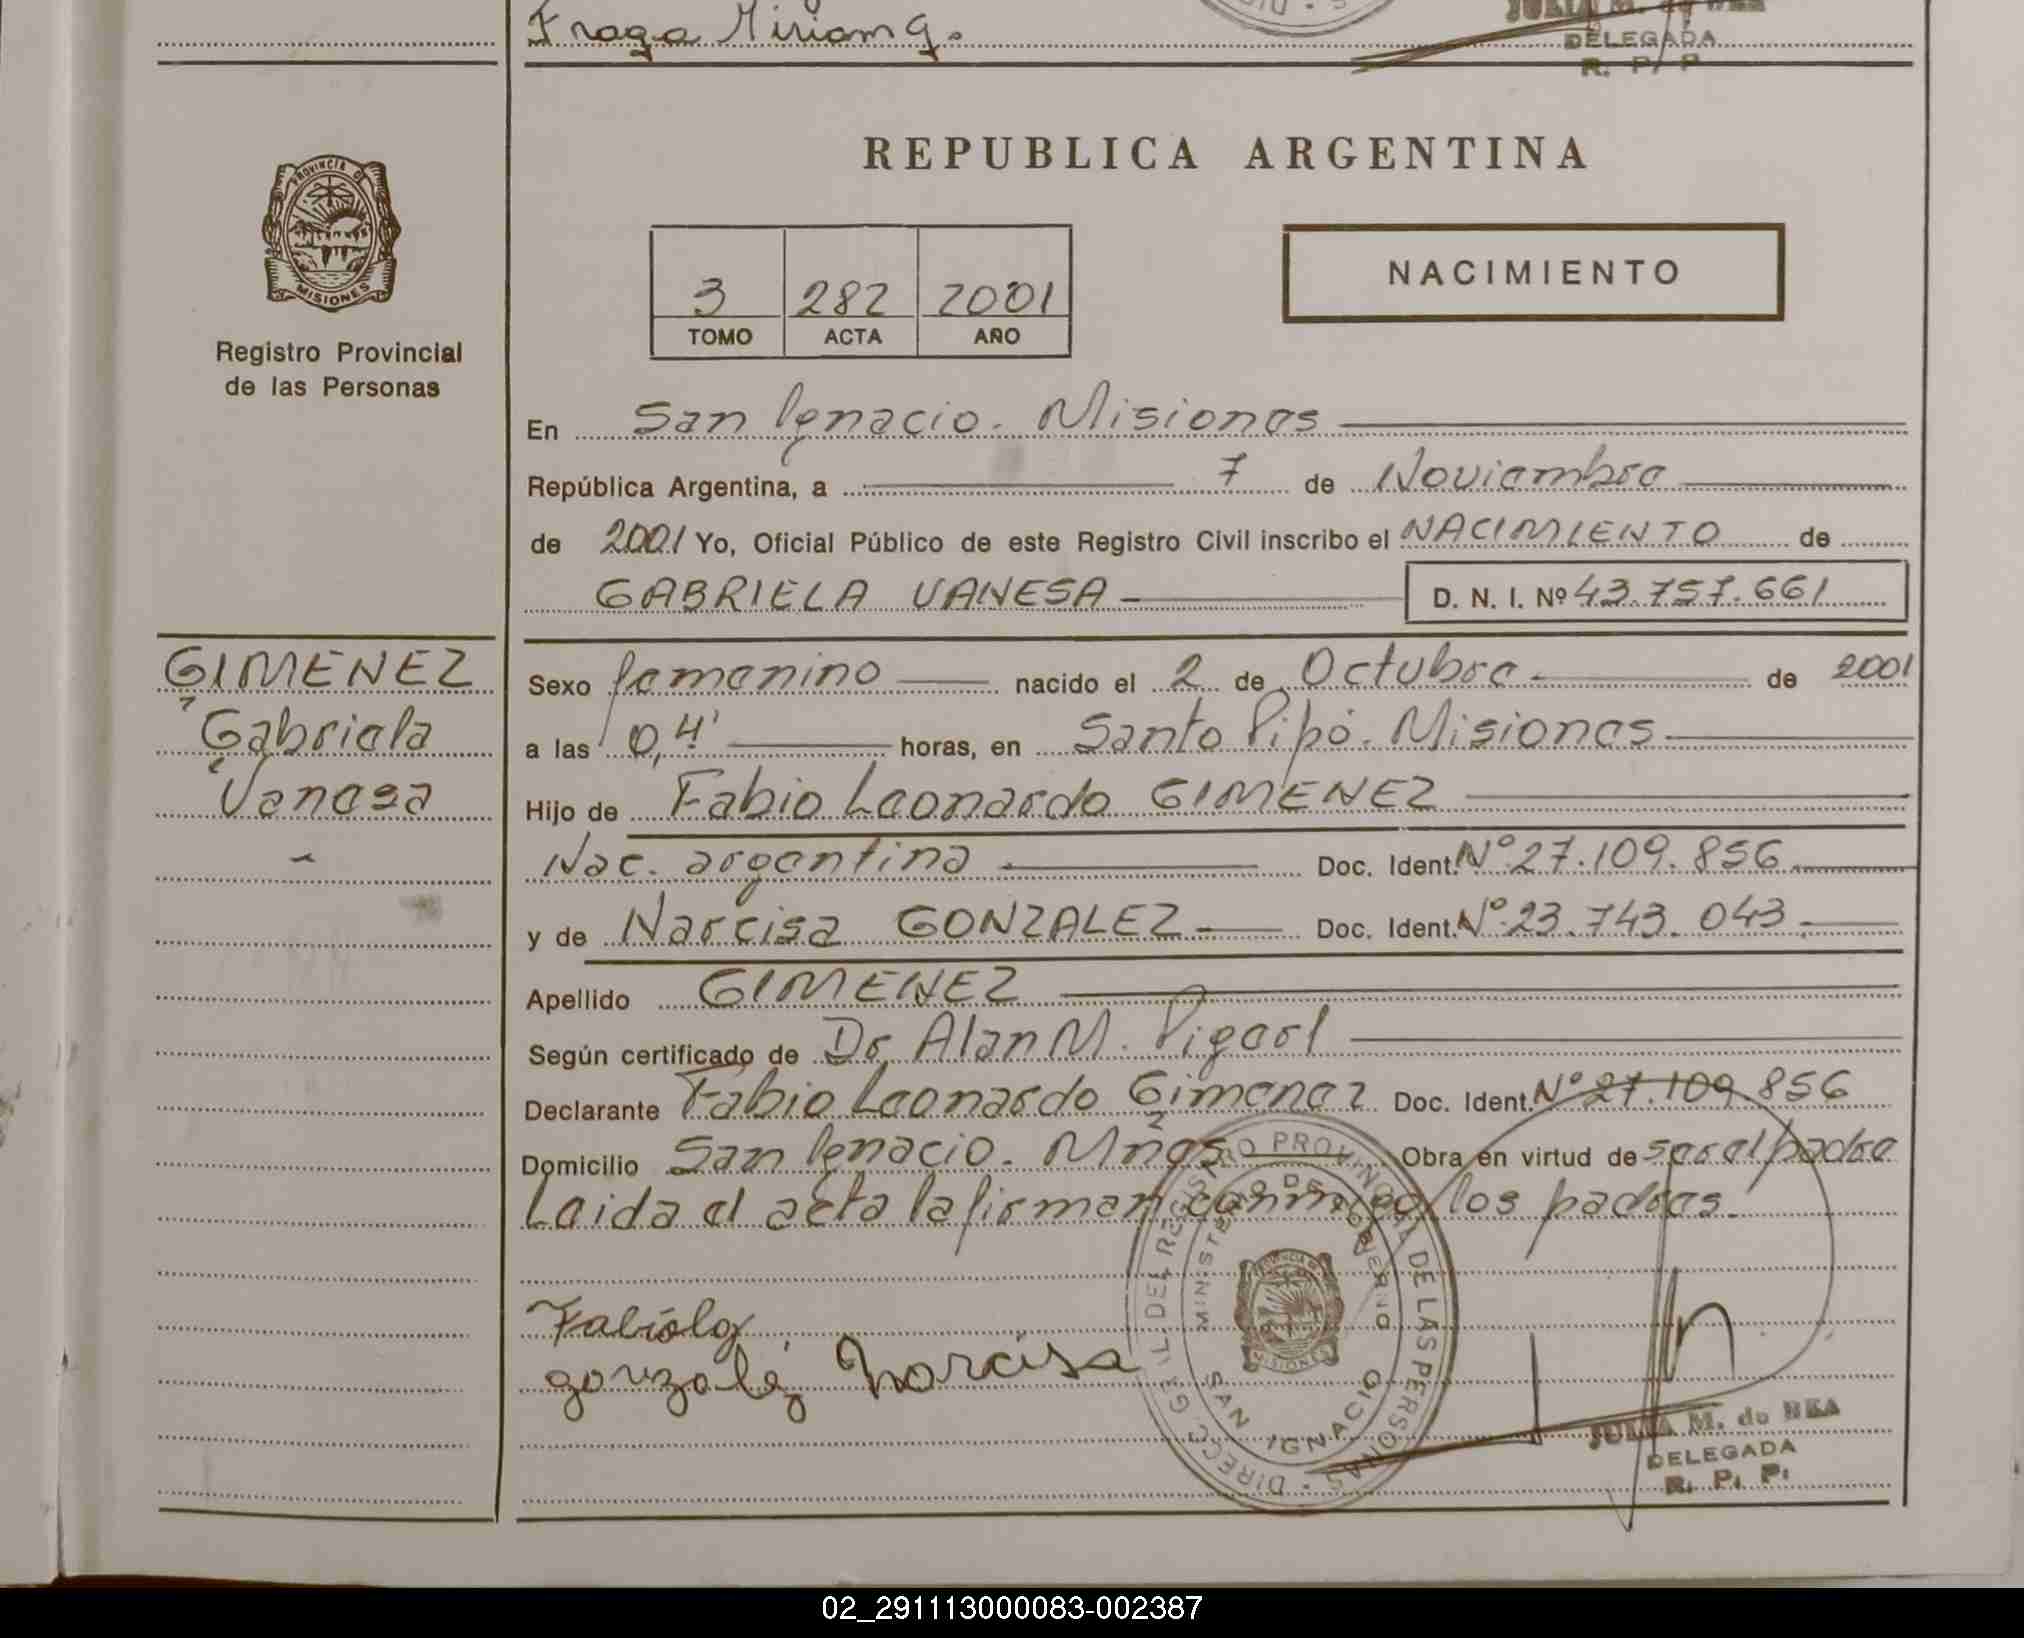 Fraga Miriam G.
JULIA M. de REA
DELEGADA
R. P. P.
PROVINCIA DE
MISIONES
Registro Provincial
de las Personas
REPUBLICA ARGENTINA
3 282 2001
TOMO ACTA AÑO
NACIMIENTO
En San Ignacio. Misiones
República Argentina, a 7 de Noviembre
de 2001 Yo, Oficial Público de este Registro Civil inscribo el NACIMIENTO de
GABRIELA VANESA D. N. I. Nº 43.757.661
GIMENEZ
Gabriela
Vanesa
Sexo femenino nacido el 2 de Octubre de 2001
a las 0,4' horas, en Santo Pipó. Misiones
Hijo de Fabio Leonardo GIMENEZ
Nac. argentina Doc. Ident. Nº 27.109.856
y de Narcisa GONZALEZ Doc. Ident. Nº 23.743.043
Apellido GIMENEZ
Según certificado de Dr. Alan M.
Declarante Fabio Leonardo Gimenez Doc. Ident. Nº 27.109.856
Domicilio San Ignacio. Mnes Obra en virtud de ser el padre
Leida el acta la firman conmigo los padres.
DIRECC. GRAL DEL REGISTRO PROVINCIAL DE LAS PERSONAS
MINISTERIO DE GOBIERNO
SAN IGNACIO
MISIONES
gonzalez Narcisa
JULIA M. de REA
DELEGADA
R. P. P.
02_291113000083-002387